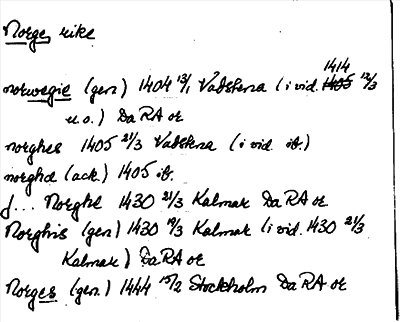 Norge, rike
norwegie (gen) 1404 13/1 Vadstena (i vid. 1414 12/3
u.o.) DaRA or
norghes 1405 21/3 Vadstena (i vid. ib.)
norghd (ack.) 1405 ib.
J... Norghe 1430 21/3 Kalmar DaRA or
Norghis (gen) 1430 19/3 Kalmar (i vid. 1430 21/3
Kalmar) DaRA or
Norges (gen.) 1444 15/2 Stockholm DaRA or